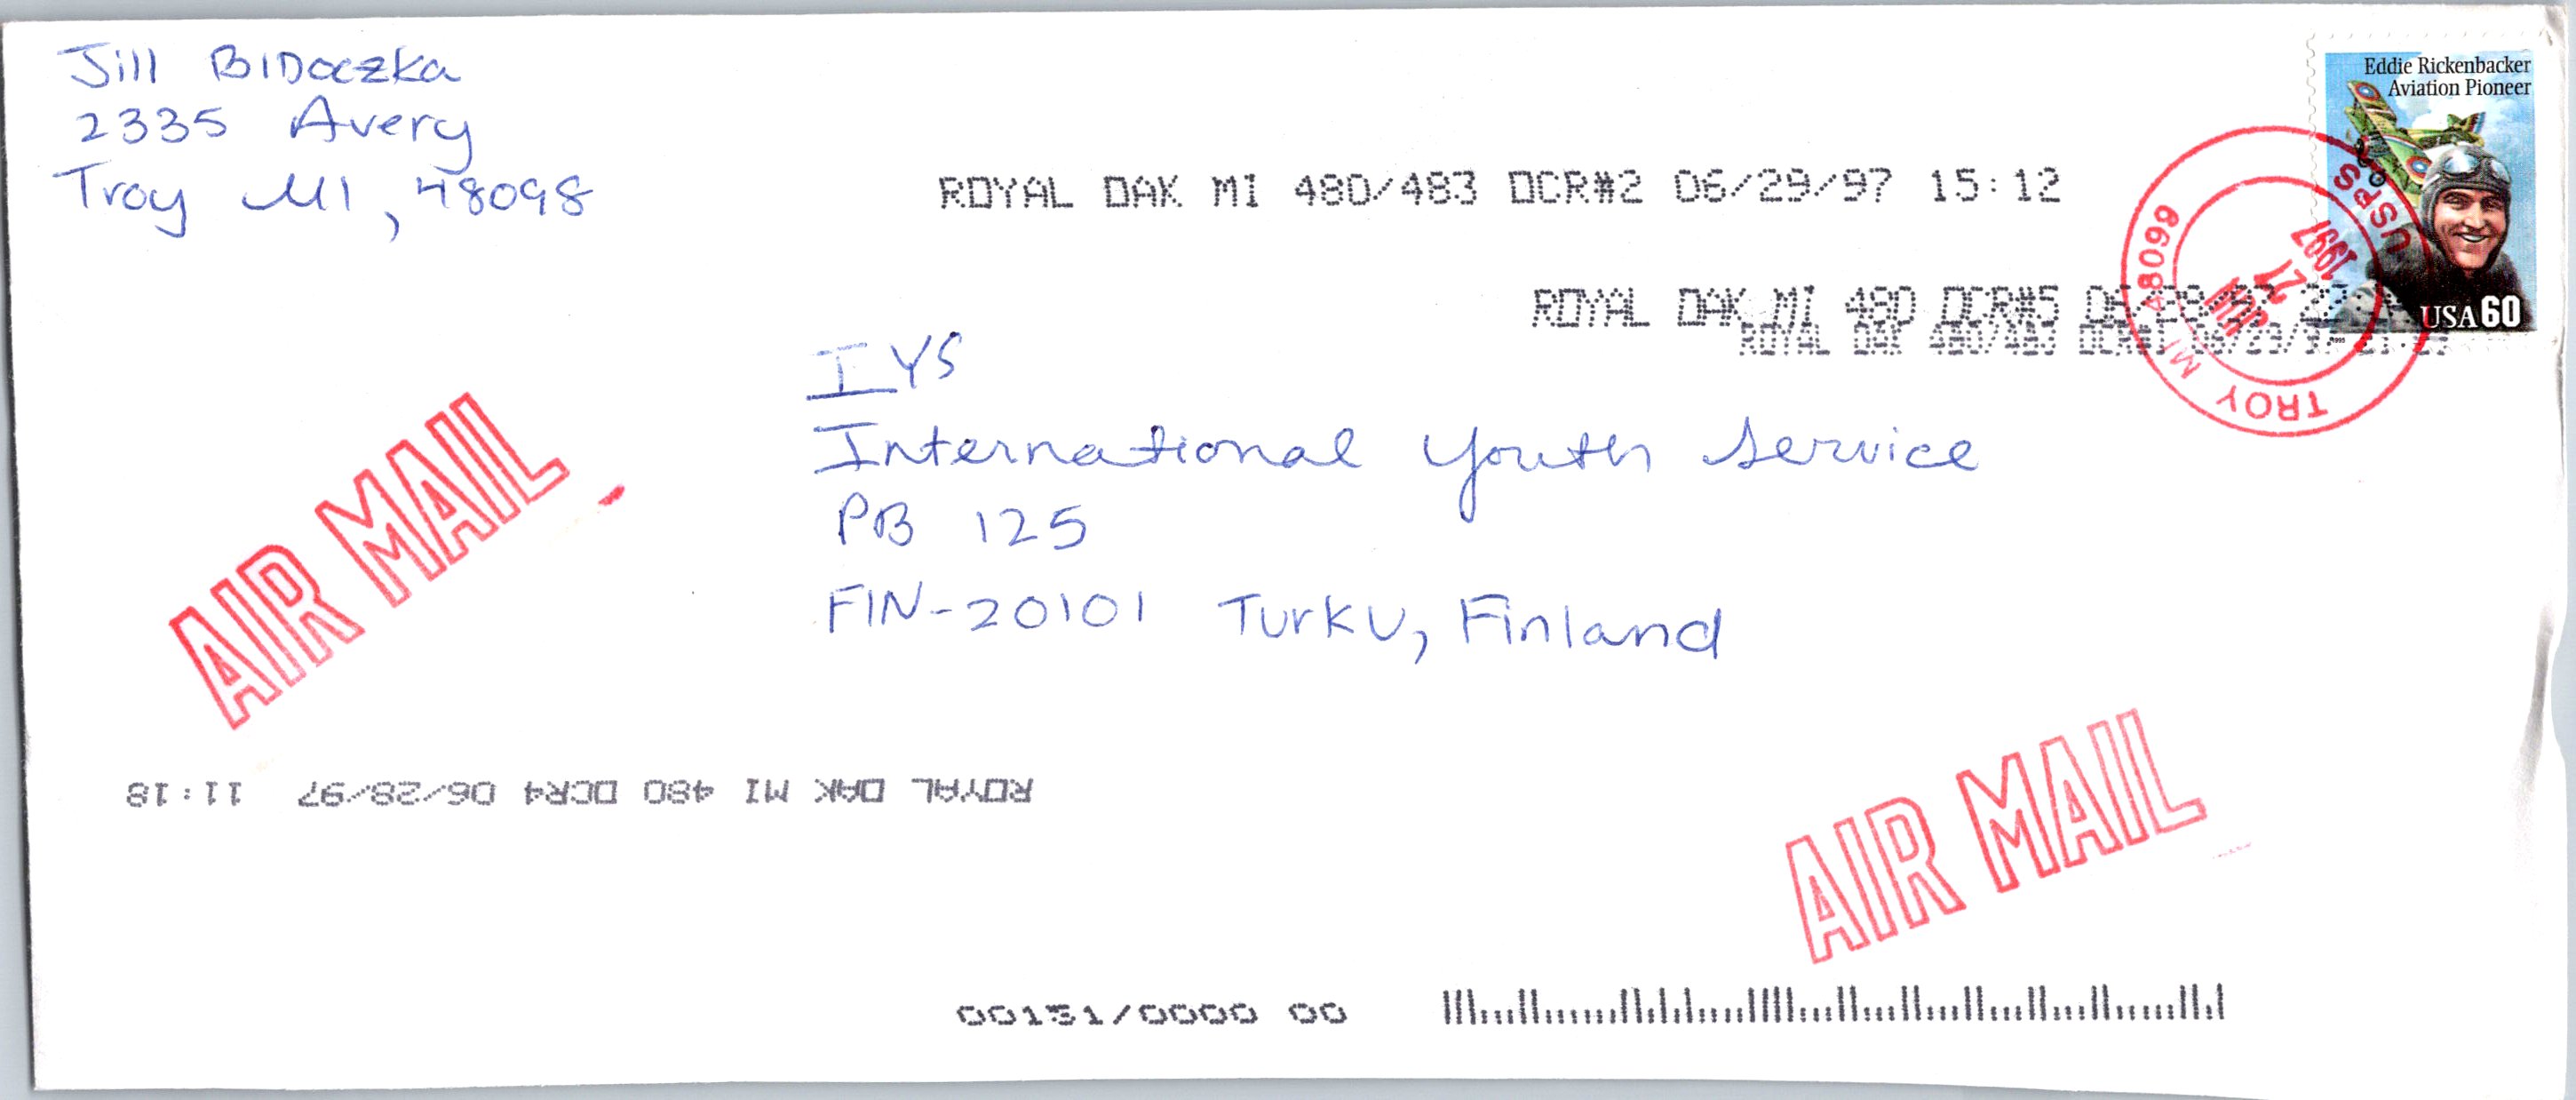 Jill BIDOCZKA
2335 Avery
Troy MI, 48098
Eddie Rickenbacker
Aviation Pioneer
USA 60
1995
ROYAL OAK MI 480/483 OCR#2 06/29/97 15:12
ROYAL OAK MI 480 OCR#5
ROYAL OAK 480/483 OCR#1 06/29/97
USPS
TROY MI 48099
JUN
27
1997
IYS
International Youth Service
PB 125
FIN-20101 Turku, Finland
AIR MAIL
ROYAL OAK MI 480 OCR4 06/28/97 11:18
AIR MAIL
00131/0000 00